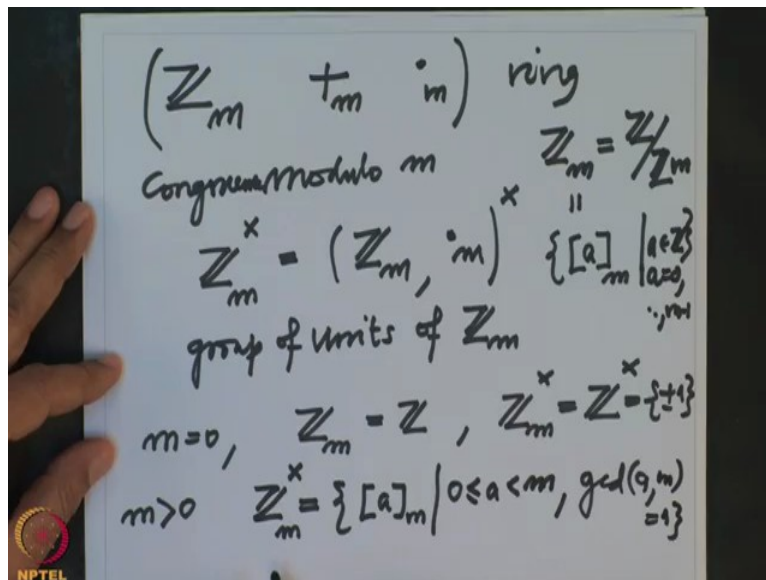 (ℤ_m +_m ·_m) ring
Congruence modulo m
ℤ_m = ℤ/ℤm
ℤ_m^× = (ℤ_m, ·_m)^×
= {[a]_m | a∈ℤ, a=0, .., m-1}
group of units of ℤ_m
m=0, ℤ_m = ℤ, ℤ_m^× = ℤ^× = {±1}
m>0 ℤ_m^× = {[a]_m | 0≤a<m, gcd(a,m)
=1}
NPTEL